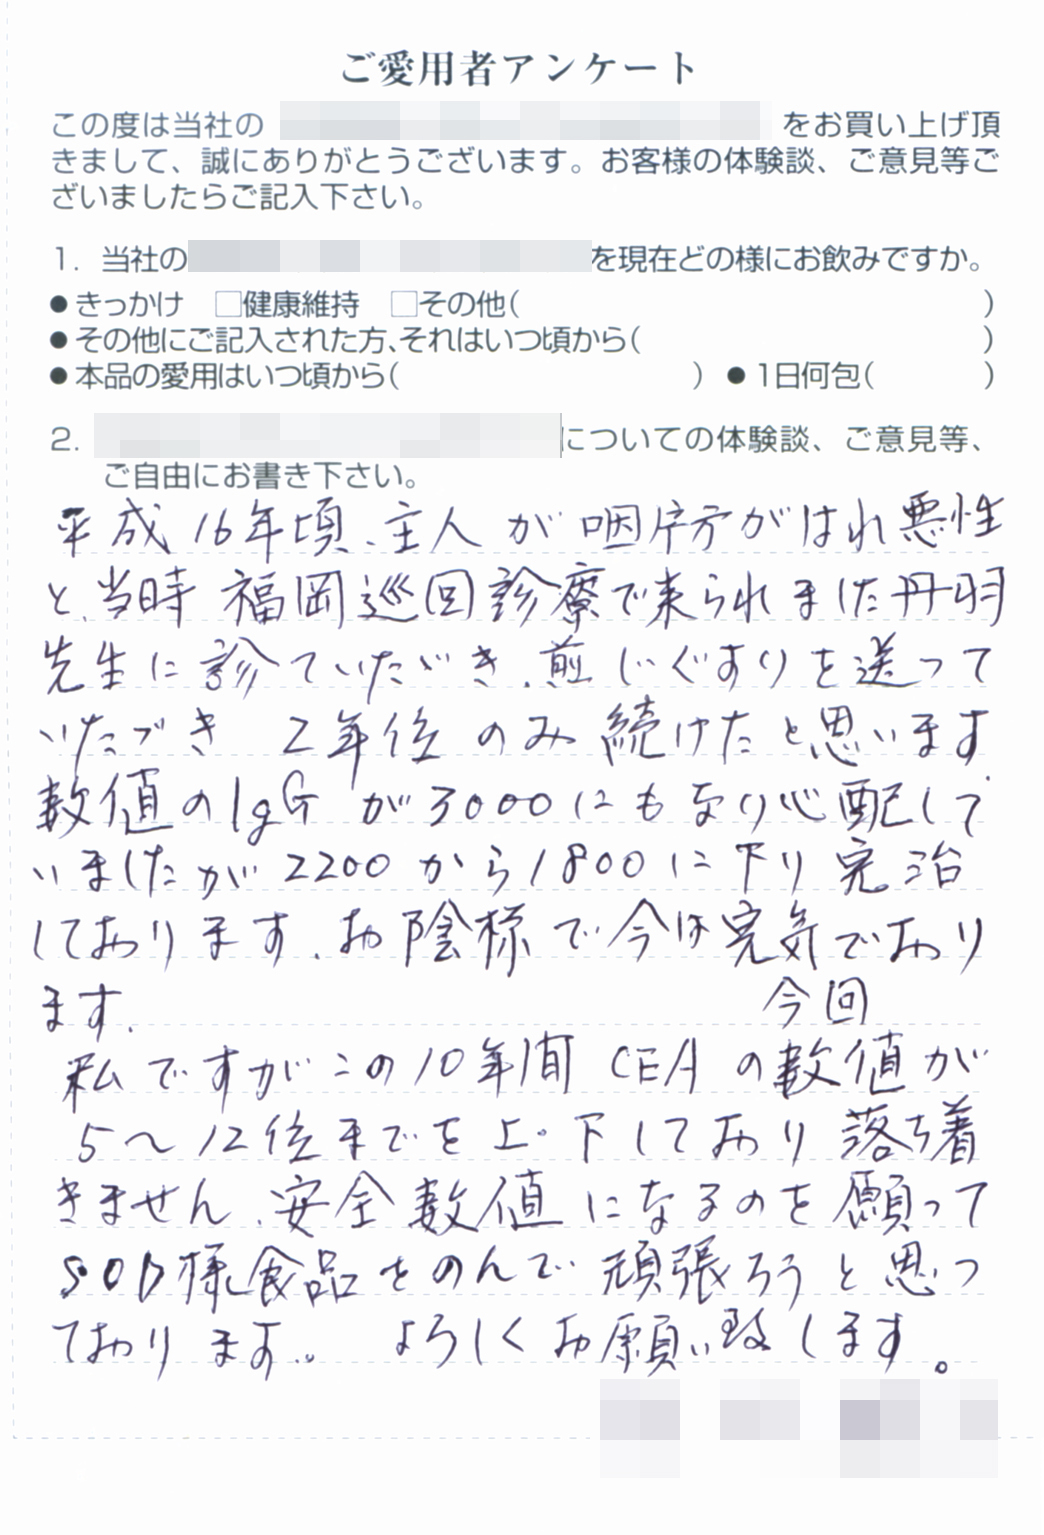 ご愛用者アンケート
この度は当社の をお買い上げ頂
きまして、誠にありがとうございます。お客様の体験談、ご意見等ご
ざいましたらご記入下さい。
1. 当社の を現在どの様にお飲みですか。
●きっかけ □健康維持 □その他( )
●その他にご記入された方、それはいつ頃から( )
●本品の愛用はいつ頃から( ) ●1日何包( )
2. についての体験談、ご意見等、
ご自由にお書き下さい。
平成16年頃、主人が咽 がはれ悪性
と、当時福岡巡回診療で来られました丹羽
先生に診ていただき、煎じぐすりを送って
いたゞき 2年位のみ続けたと思います
数値のIgGが3000にもなり心配して
いましたが2200から1800に下り完治
しております。お陰様で今は完気でおり
ます。 今回
私ですがこの10年間CEAの数値が
5〜12位までを上・下しており落ち着
きません、安全数値になるのを願って
SOD様食品をのんで頑張ろうと思っ
ております。 よろしくお願い致します。